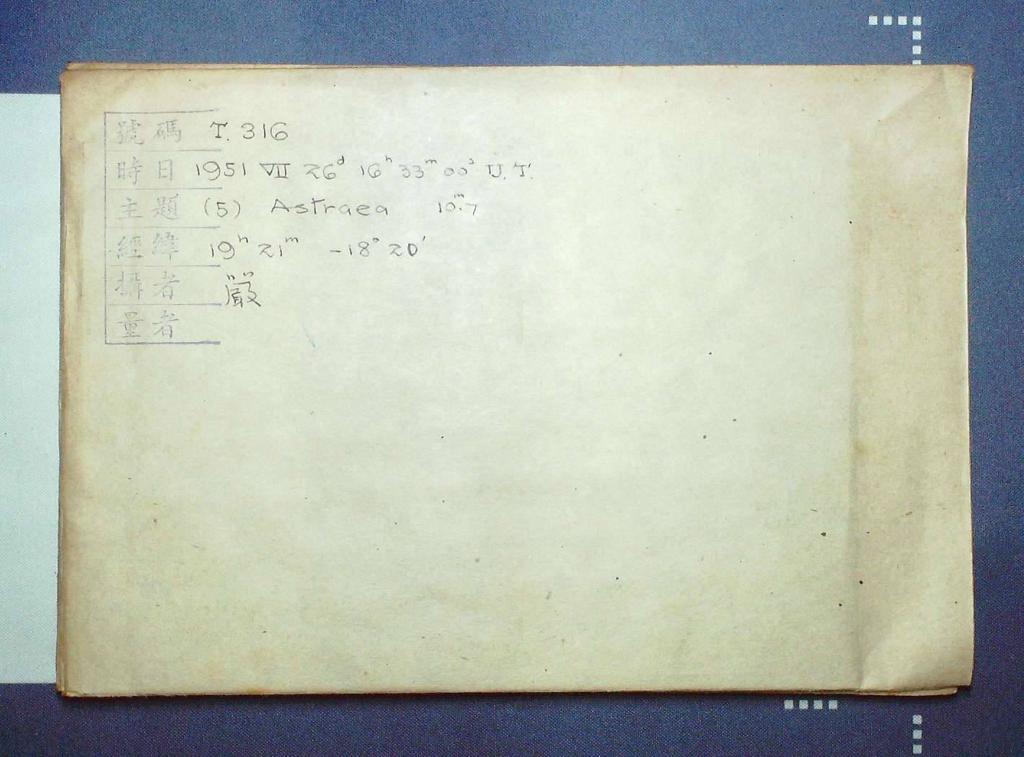 號碼 T. 316
時日 1951 VII 26ᵈ 16ʰ 33ᵐ 00ˢ U.T.
主題 (5) Astraea 10ᵐ.7
經緯 19ʰ 21ᵐ -18° 20'
攝者 嚴
量者